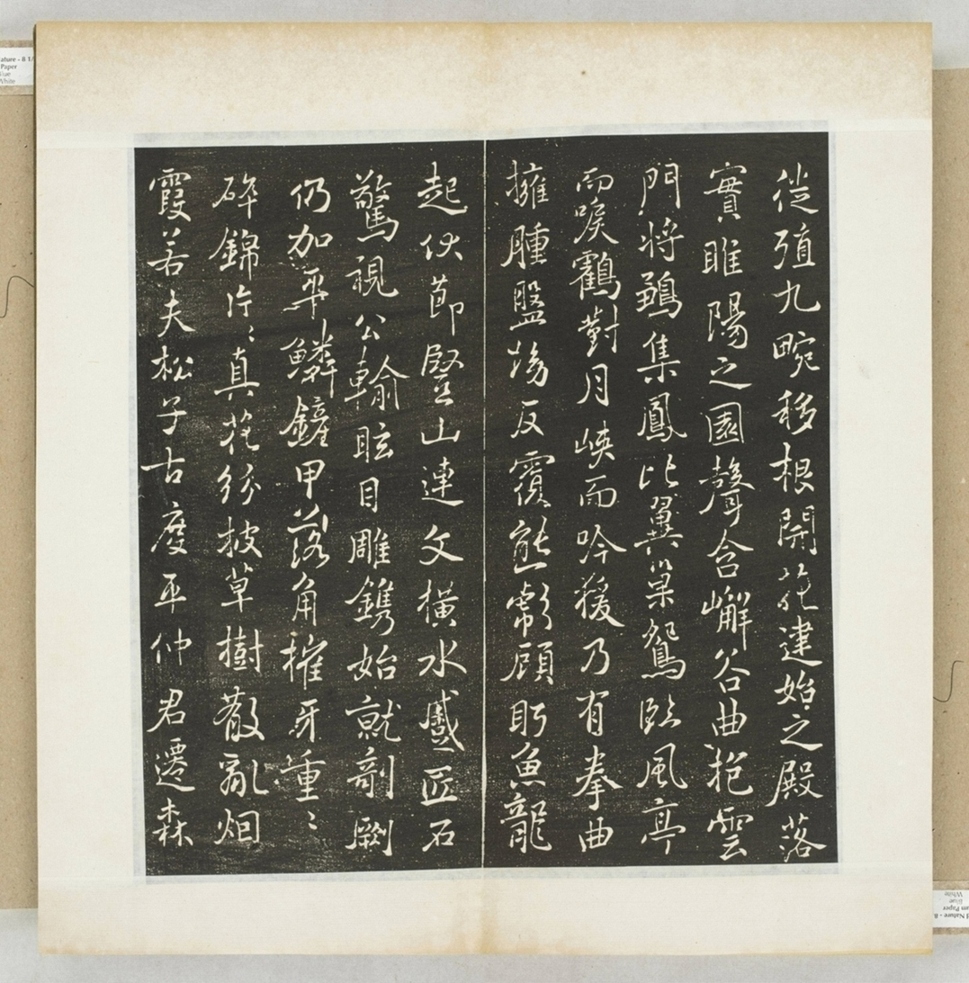 徙殖九畹移根開花建始之殿落
實睢陽之園聲含嶰谷曲抱雲
門將鵷集鳳比翼巢鴛臨風亭
而唳鶴對月峽而吟猨乃有拳曲
擁腫盤坳反覆熊彪顧盼魚龍
起伏節豎山連文橫水蹙匠石
驚視公輸眩目雕鐫始就剞劂
仍加平鱗鏟甲落角摧牙重〻
碎錦片〻真花紛披草樹散亂烟
霞若夫松子古度平仲君遷森
Paper
White